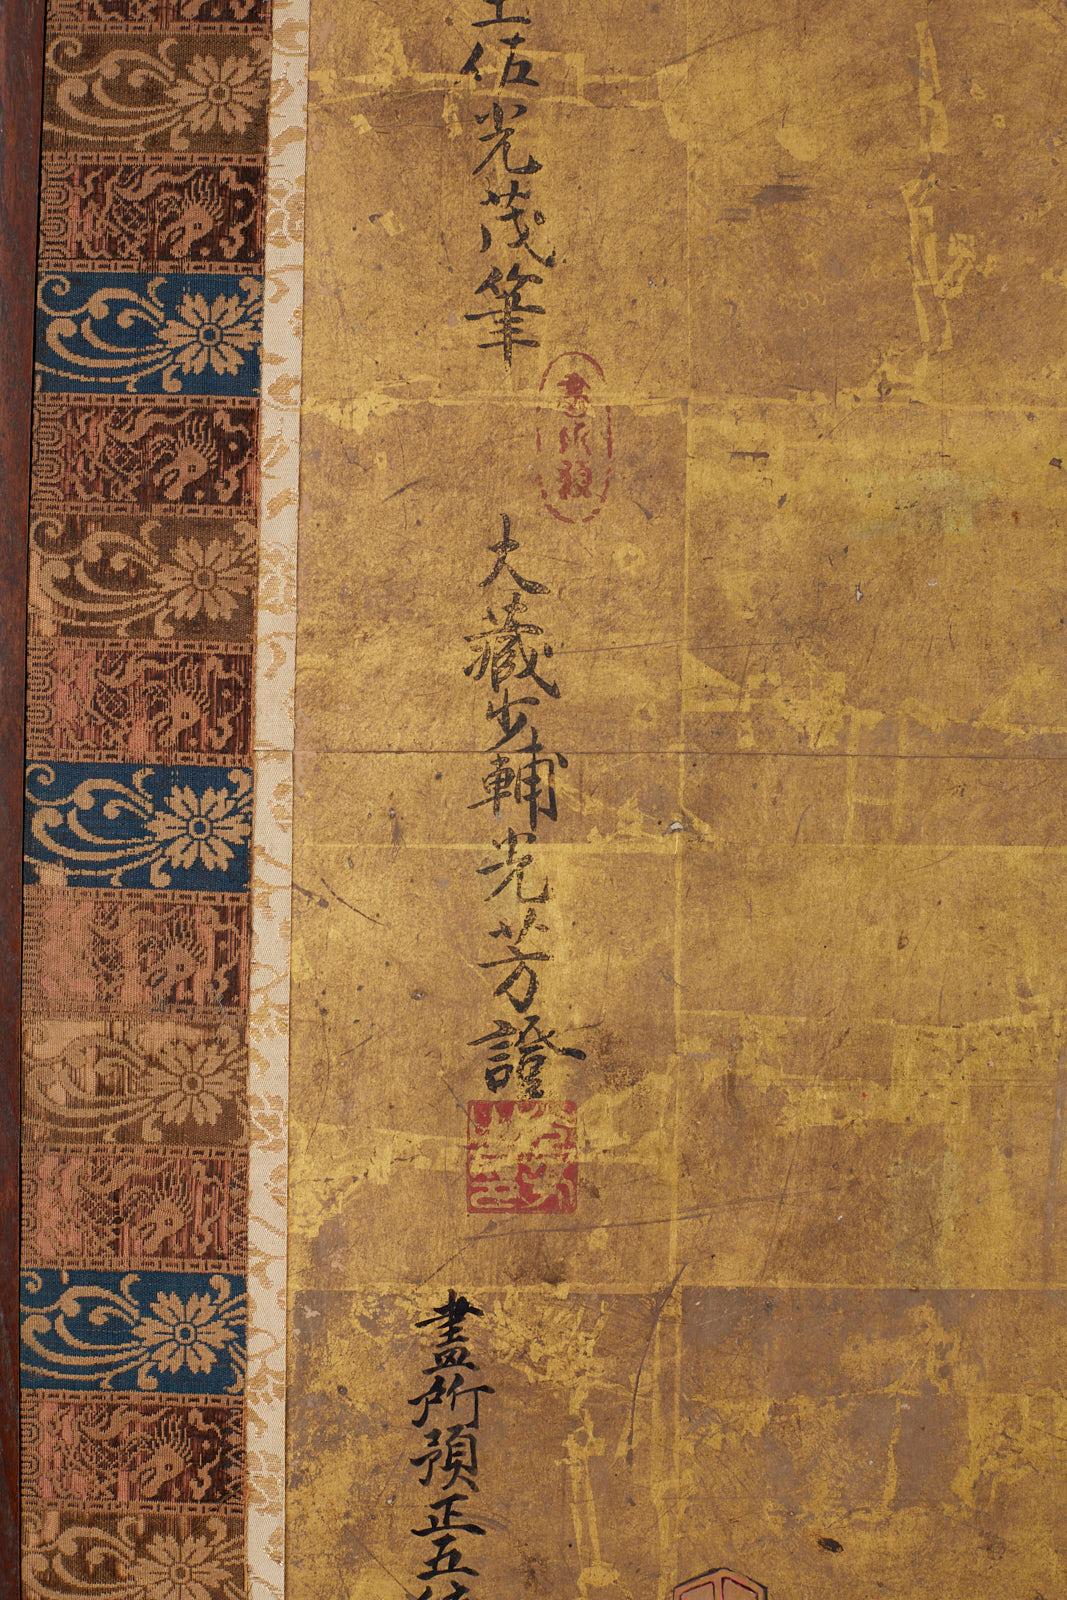 土佐光茂筆
畫所預
大藏少輔光芳證
畫所預正五位